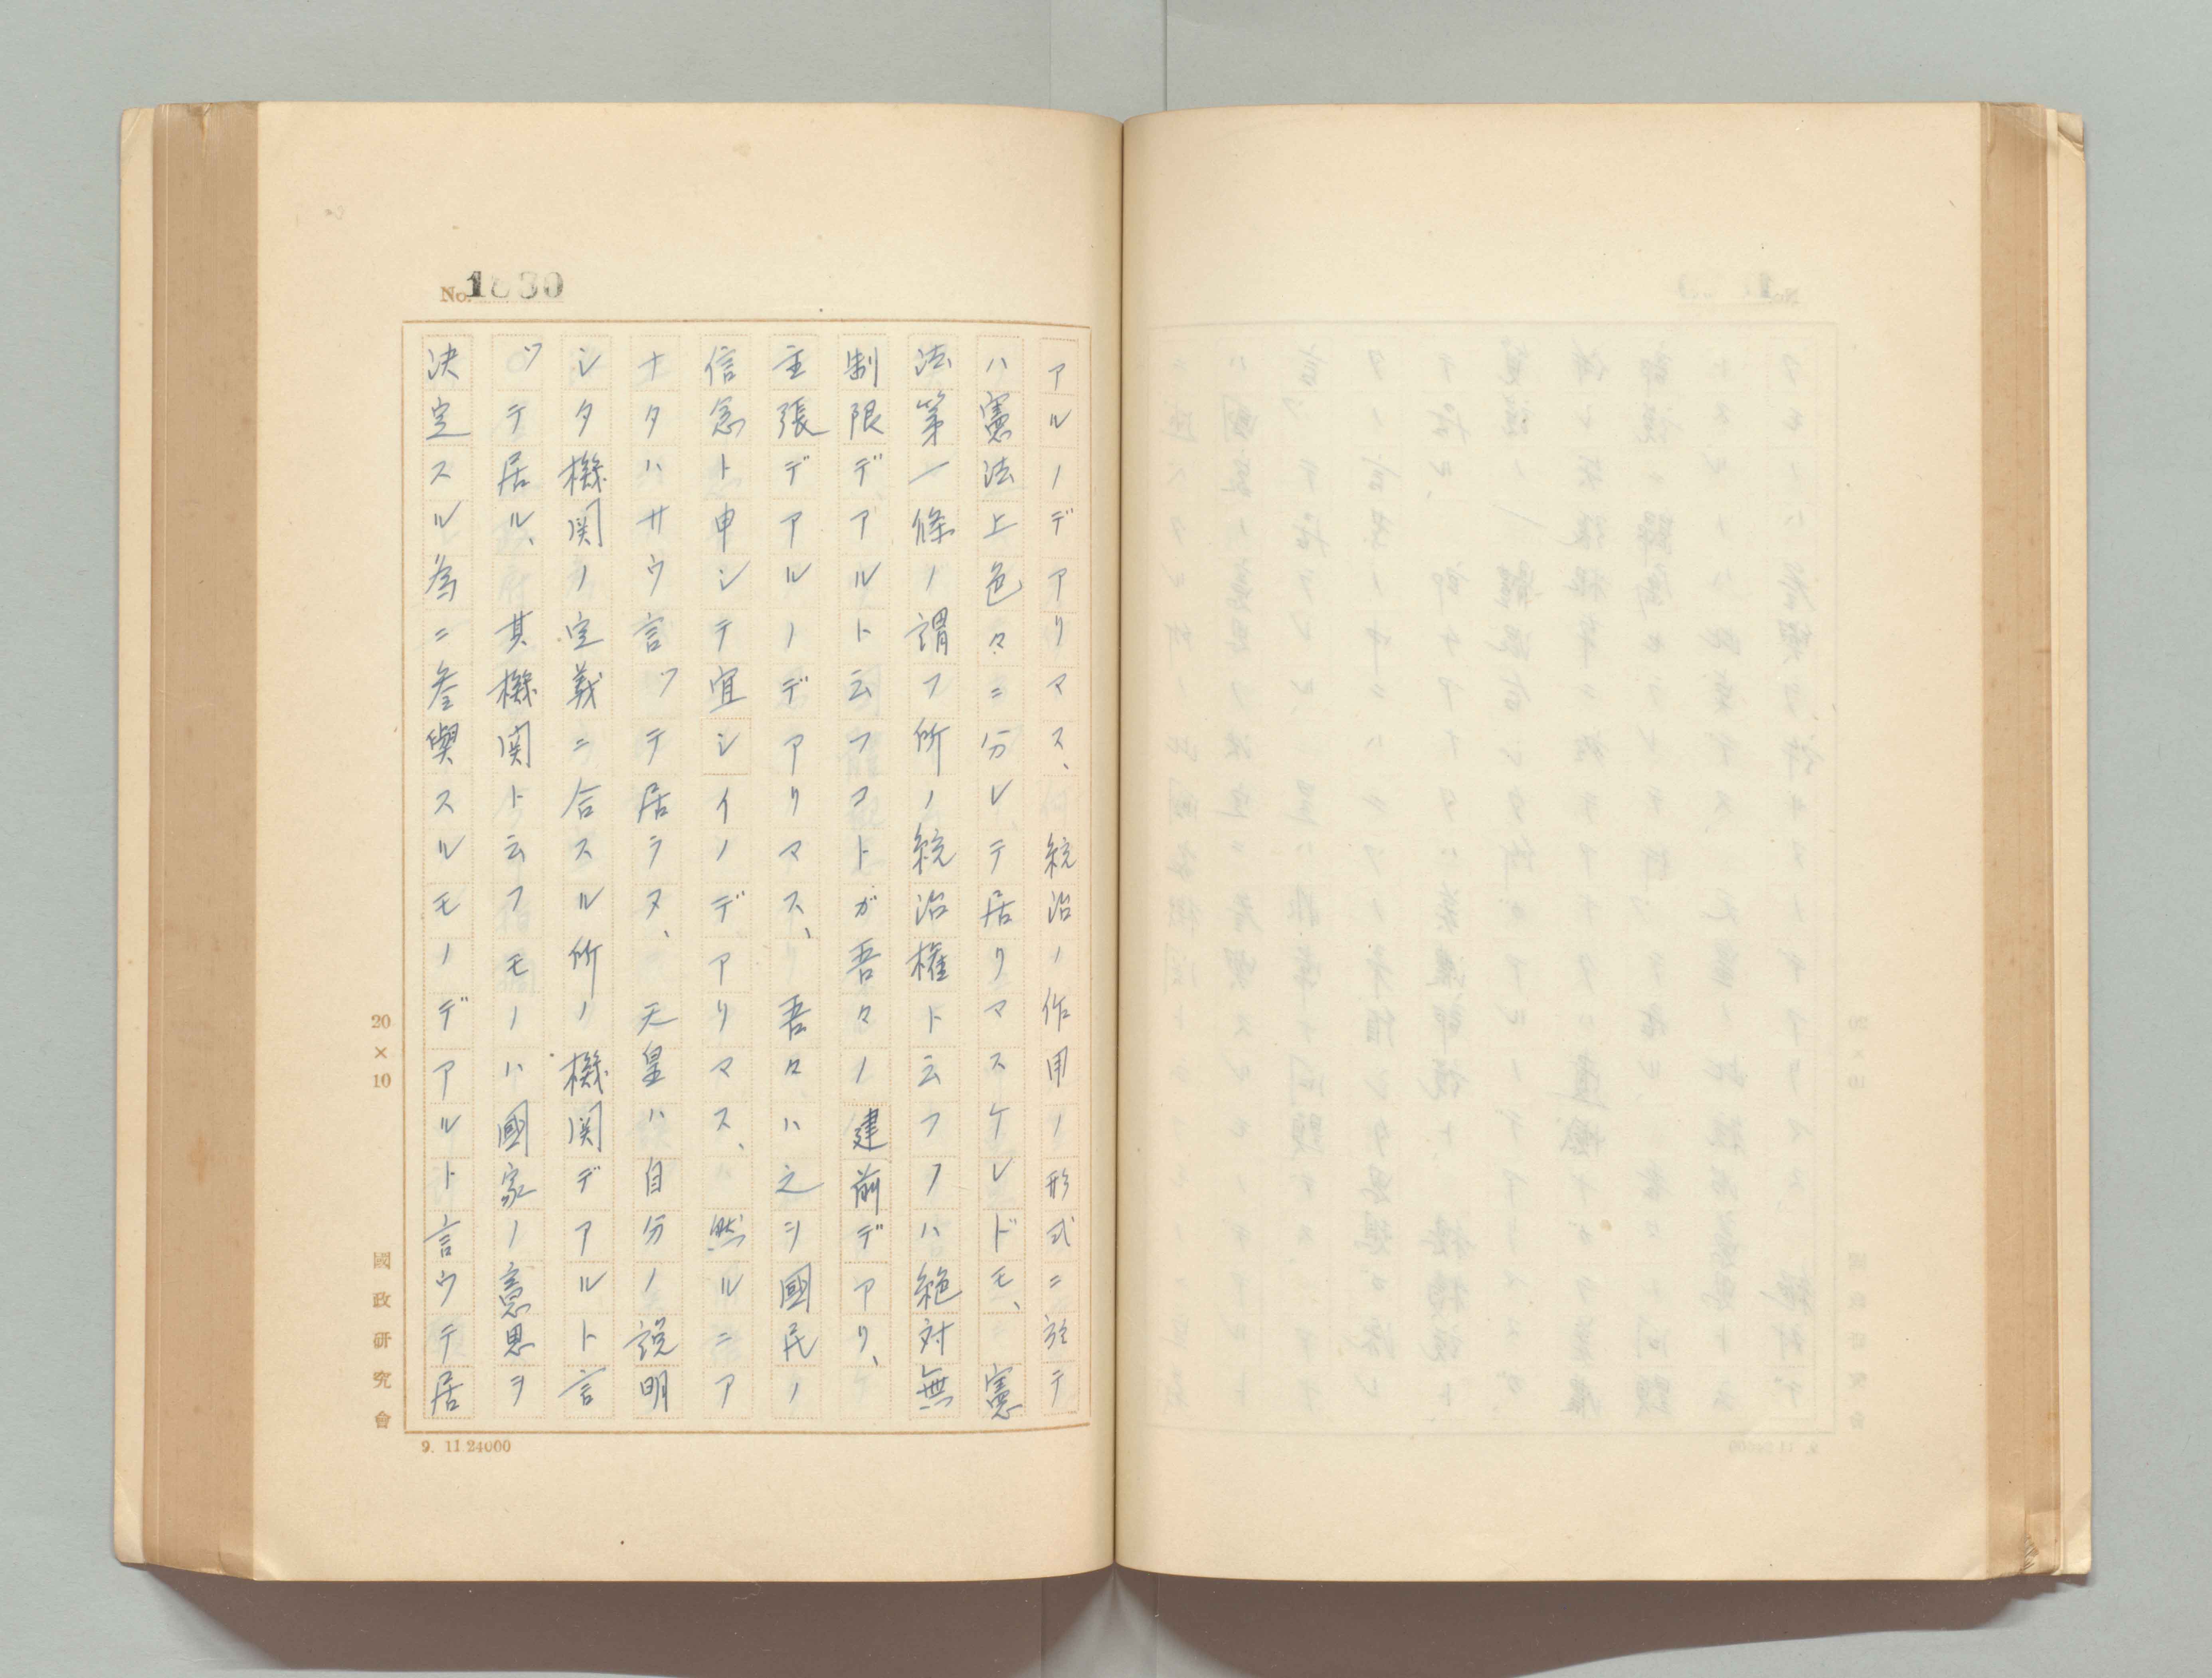 No. 1830
アルノデアリマス、統治ノ作用ノ形式ニ於テ
ハ憲法上色々ニ分レテ居リマスケレドモ、憲
法第一條ノ謂フ所ノ統治権ト云フノハ絶対無
制限デアルト云フコトガ吾々ノ建前デアリ、
主張デアルノデアリマス、吾々ハ之ヲ國民ノ
信念ト申シテ宜シイノデアリマス、然ルニア
ナタハサウ言ツテ居ラヌ、天皇ハ自分ノ説明
シタ機関ノ定義ニ合スル所ノ機関デアルト言
ツテ居ル、其機関ト云フモノハ國家ノ意思ヲ
決定スル為ニ参與スルモノデアルト言ウテ居
20×10
國政研究會
9. 11.24000